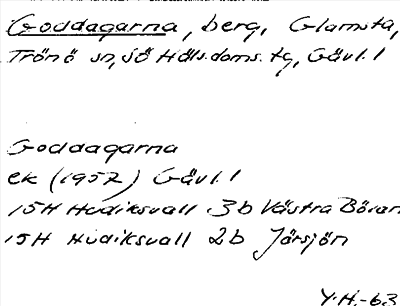 Goddagarna, berg, Glamsta,
Trönö sn, SÖ Häls. doms. tg, Gävl. l
Goddagarna
ek (1957) Gävl. l
15H Hudiksvall 3b Västra Böran
15H Hudiksvall 2b Jörsjön
Y.H.-63